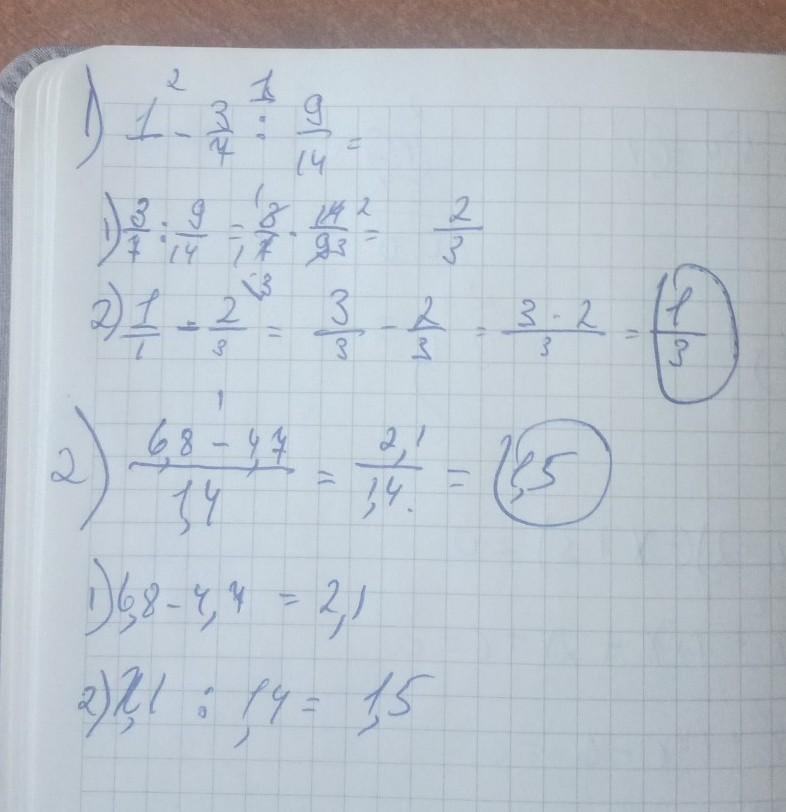 1) 1 - 3/7 : 9/14 =
1) 3/7 : 9/14 = 3/7 · 14/9 = 2/3
2) 1/1 - 2/3 = 3/3 - 2/3 = 3-2/3 = 1/3
2) 6,8 - 4,7/1,4 = 2,1/1,4. = 1,5
1) 6,8 - 4,7 = 2,1
2) 2,1 : 1,4 = 1,5